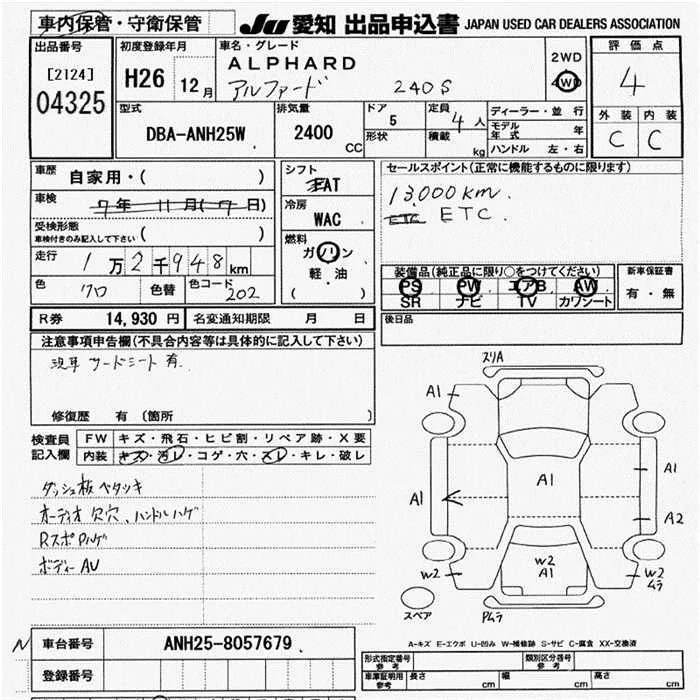 車内保管・守衛保管
JU 愛知 出品申込書 JAPAN USED CAR DEALERS ASSOCIATION
出品番号
[2124]
04325
初度登録年月
H26 12月
車名・グレード
ALPHARD
アルファード 240S
2WD
4WD
評価点
4
外装 内装
C C
型式
DBA-ANH25W
排気量
2400
CC
ドア
5
形状
定員
4人
積載
kg
ディーラー・並行
モデル年式 年
ハンドル 左・右
車歴
自家用・( )
車検
7年 11月(7日)
受検形態
車検付きのみ記入して下さい ( )
走行
1万2千948km
色
クロ
色替
色コード
202
シフト
FAT
冷房
WAC
燃料
ガソリン
軽・油
( )
セールスポイント(正常に機能するものに限ります)
13,000km.
ETC ETC.
装備品(純正品に限り○をつけてください)
PS PW エアB AW
SR ナビ TV カワシート
新車保証書
有・無
R券 14,930円 名変通知期限 月 日
後日品
注意事項申告欄(不具合内容等は具体的に記入して下さい)
現車 サードシート 有.
修復歴 有(箇所 )
検査員記入欄
FW キズ・飛石・ヒビ割・リペア跡・X要
内装 キズ・汚レ・コゲ・穴・スレ・キレ・破レ
ダッシュ板ベタツキ
オーディオ欠穴、ハンドルハゲ
RスポPハゲ
ボディーAU
スリA
A1
A1
A1
A1
A2
W2
W2
A1
W2
ムラ
スペア
Pムラ
A-キズ E-エクボ U-凹み W-補修跡 S-サビ C-腐食 XX-交換済
N 車台番号 ANH25-8057679
登録番号
形式指定番号
参考
類別区分番号
参考
車庫証明用
参考
長さ cm 幅 cm 高さ cm